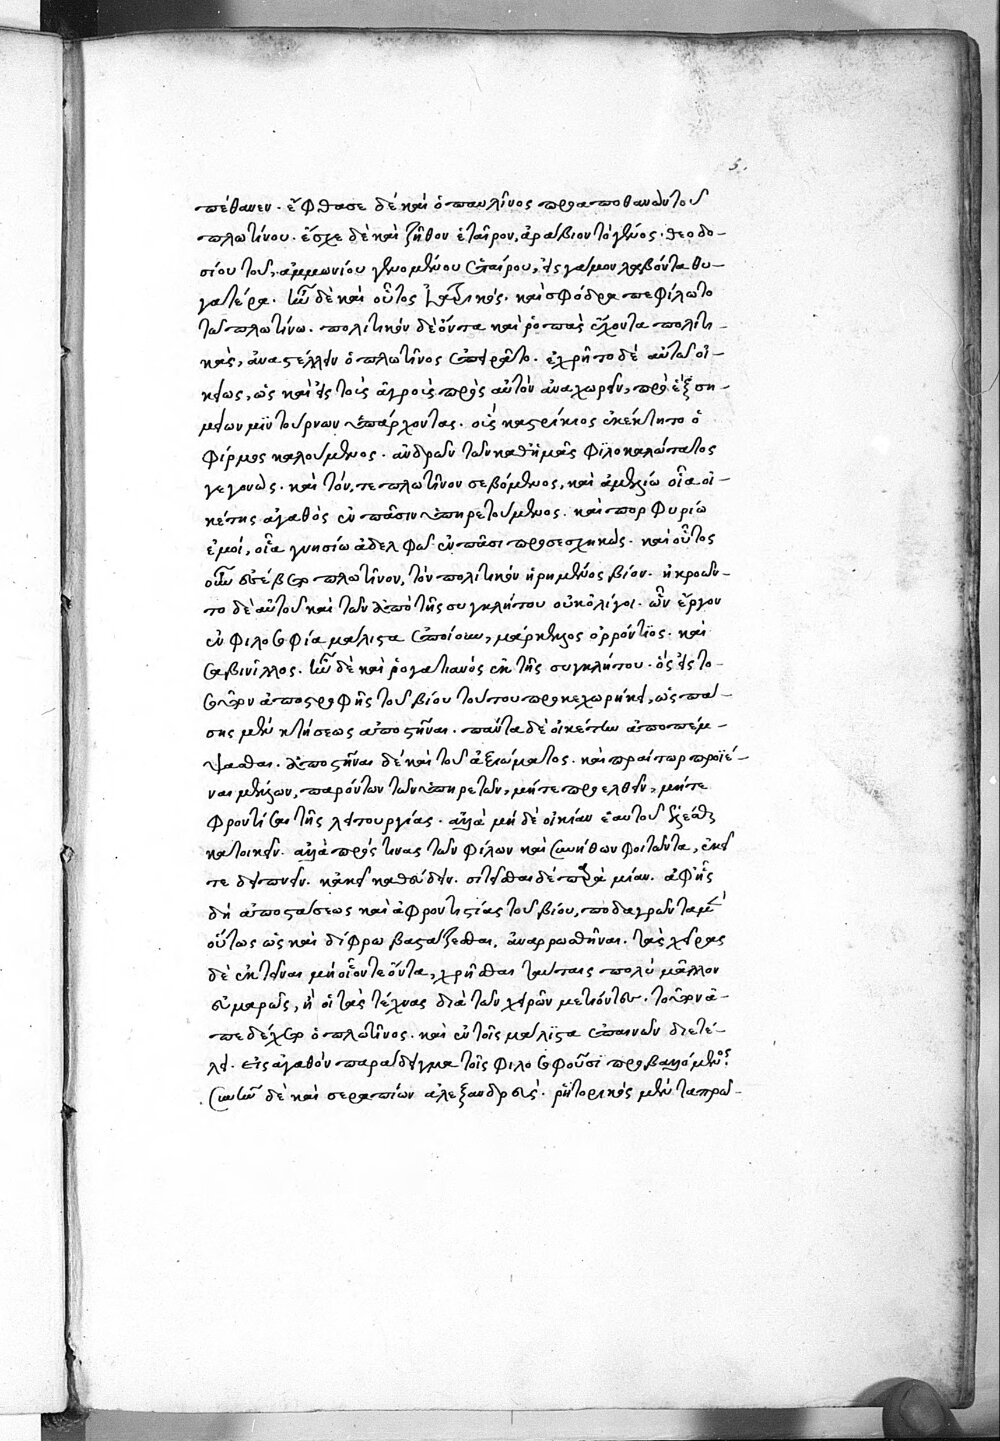 5.
πέθανεν. ἔφθασε δὲ καὶ ὁ παυλῖνος προαποθανὼν τοῦ
πλωτίνου. ἔσχε δὲ καὶ ζῆθον ἑταῖρον, ἀράβιον τὸ γένος. θεοδο-
σίου τοῦ, ἀμμωνίου γενομένου ἑταίρου, εἰς γάμον λαβόντα θυ-
γατέρα. ἦν δὲ καὶ οὗτος ἰατρικός. καὶ σφόδρα πεφίλωτο
τῶ πλωτίνω. πολιτικὸν δὲ ὄντα καὶ ῥοπὰς ἔχοντα πολιτι-
κὰς, ἀναστέλλειν ὁ πλωτῖνος ἐπειρᾶτο. ἐχρῆτο δὲ αὐτῶ οἰ-
κείως, ὡς καὶ εἰς τοὺς ἀγροὺς πρὸς αὐτὸν ἀναχωρεῖν, πρὸ ἓξ ση-
μείων μιντούρνων ὑπάρχοντας. οὓς καστρίκιος ἐκέκτητο ὁ
φίρμος καλούμενος. ἀνδρῶν τῶν καθ' ἡμᾶς φιλοκαλώτατος
γεγονὼς. καὶ τόν, τε πλωτῖνον σεβόμενος, καὶ ἀμελίω οἷα οἰ-
κέτης ἀγαθὸς ἐν πᾶσιν ὑπηρετούμενος. καὶ πορφυρίω
ἐμοὶ, οἷα γνησίω ἀδελφῶ ἐν πᾶσι προσεσχηκώς. καὶ οὗτος
οὖν ἐσέβετο πλωτῖνον, τὸν πολιτικὸν ἡρημένος βίον. ἠκροῶν-
το δὲ αὐτοῦ καὶ τῶν ἀπὸ τῆς συγκλήτου οὐκ ὀλίγοι. ὧν ἔργον
ἐν φιλοσοφία μάλιστα ἐποίουν, μάρκελλος ὀρρόντιος. καὶ
σαβινίλλος. ἦν δὲ καὶ ῥογατιανὸς ἐκ τῆς συγκλήτου. ὃς εἰς το-
σοῦτον ἀποστροφῆς τοῦ βίου τούτου προκεχωρήκει, ὡς πά-
σης μὲν κτήσεως ἀποστῆναι. πάντα δὲ οἰκέτην ἀποπέμ-
ψασθαι. ἀποστῆναι δὲ καὶ τοῦ ἀξιώματος. καὶ πραίτωρ προϊέ-
ναι μέλλων, παρόντων τῶν ὑπηρετῶν, μήτε προελθεῖν, μήτε
φροντίσαι τῆς λειτουργίας. ἀλλὰ μὴ δὲ οἰκίαν ἑαυτοῦ ἑλέσθαι
κατοικεῖν. ἀλλὰ πρός τινας τῶν φίλων καὶ συνήθων φοιτῶντα, ἐκεῖ
τε δειπνεῖν. κἀκεῖ καθεύδειν. σιτεῖσθαι δὲ παρὰ μίαν. ἀφ' ἧς
δὴ ἀποστάσεως καὶ ἀφροντιστίας τοῦ βίου, ποδαγρῶντα μὲν
οὕτως ὡς καὶ δίφρω βαστάζεσθαι, ἀναρρωσθῆναι. τὰς χεῖρας
δὲ ἐκτεῖναι μὴ οἷόντε ὄντα, χρῆσθαι ταύταις πολὺ μᾶλλον
εὐμαρῶς, ἢ οἱ τὰς τέχνας διὰ τῶν χειρῶν μετιόντες. τοῦτον ἀ-
πεδέχετο ὁ πλωτῖνος. καὶ ἐν τοῖς μάλιστα ἐπαινῶν διετέ-
λει. εἰς ἀγαθὸν παράδειγμα τοῖς φιλοσοφοῦσι προβαλλόμενος.
συνῆν δὲ καὶ σεραπίων ἀλεξανδρεὺς. ῥητορικὸς μὲν τὰ πρῶ-